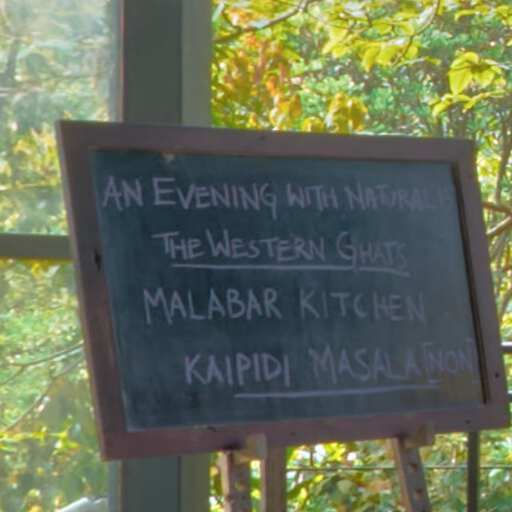 AN EVENING WITH
THE WESTERN GHATS
MALABAR KITCHEN
KAIPIDI MASALA [NON